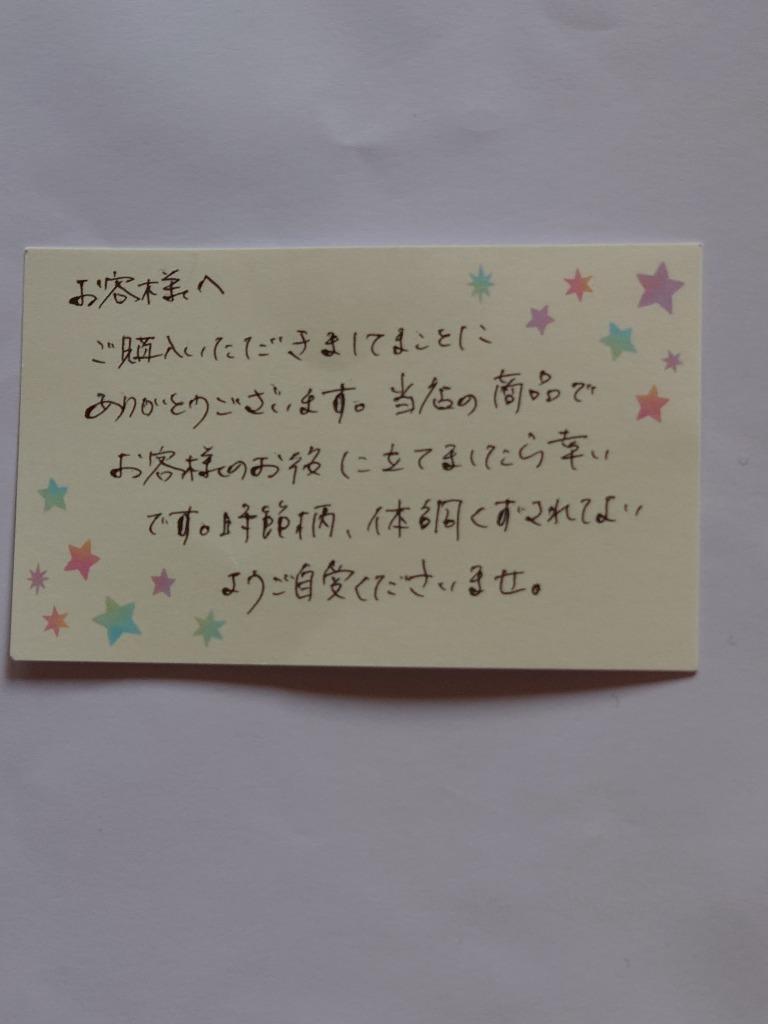 お客様へ
ご購入いただきましてまことに
ありがとうございます。当店の商品で
お客様のお後に立てましたら幸い
です。時節柄、体調くずされてない
ようご自愛くださいませ。